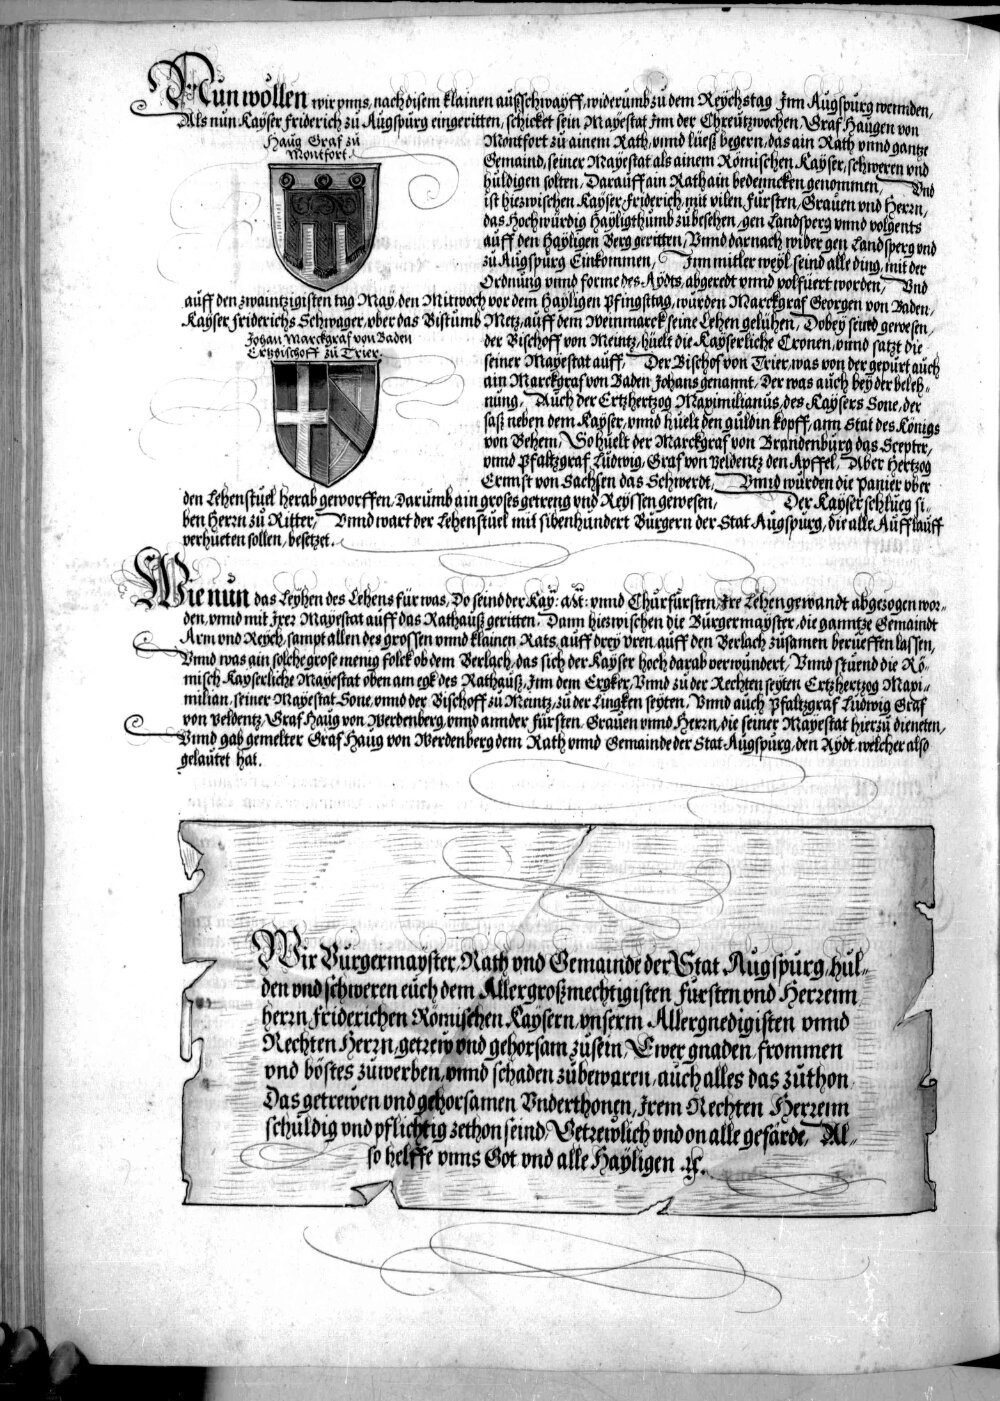 Nun wöllen wir vnns, nach disem klainen außschwayff, widerumb zu dem Reychstag Jnn Augspurg wennden,
Als nun Kayser friderich zu Augspurg eingeritten, schicket sein Mayestat Jnn der Chreützwochen, Graf Haugen von
Haug Graf zu
Montfort.
Montfort zu ainem Rath, vnnd lüeß begern, das ain Rath vnnd gantze
Gemaind, seiner Mayestat als ainem Römischen Kayser, schweren vnd
huldigen solten, Darauff ain Rath ain bedenncken genommen, Vnd
ist hiezwischen Kayser friderich, mit vilen fürsten, Grauen vnd Herrn,
das Hochwürdig Hayligthumb zu besehen, gen Landsperg vnnd volgents
auff den Hayligen Berg geritten, Vnnd darnach wider gen Landsperg vnd
zu Augspurg Einkommen, Jnn mitler weyl seind alle ding, mit der
Ordnung vnnd forme des Aydts, abgeredt vnnd volfuert worden, Vnd
auff den zwaintzigisten tag May, den Mitwoch vor dem Hayligen Pfingsttag, wurden Marckgraf Georgen von Baden,
Kayser friderichs Schwager, vber das Bistumb Metz, auff dem Weinmarck seine Lehen gelühen, Dobey seind gewesen,
Johan Marckgraf von Baden
Ertzbischoff zu Trier.
der Bischoff von Meintz, hüelt die Kayserliche Cronen, vnnd satzt die
seiner Mayestat auff, Der Bischof von Trier, was von der gepurt auch
ain Marckgraf von Baden Johans genannt, Der was auch bey der beleh-
nung, Auch der Ertzhertzog Maximilianus, des Kaysers Sone, der
saß neben dem Kayser, vnnd hüelt den guldin kopff, ann stat des Königs
von Behem, So hüelt der Marckgraf von Brandenburg das Scepter,
vnnd Pfaltzgraf Ludwig, Graf von Veldentz den Apffel, Aber Hertzog
Ernnst von Sachsen das Schwerdt, Vnnd wurden die Panier vber
den Lehenstuel herab geworffen, Darumb ain groses getreng vnd Reyssen gewesen, Der Kayser schlueg si-
ben Herrn zu Ritter, Vnnd wart der Lehenstuel mit sibenhundert Burgern der Stat Augspurg, die alle Aufflauff
verhüeten sollen, besetzet.
Wie nun das Leyhen des Lehens für was, Do seind der Kay: Mt: vnnd Churfürsten, Jre Lehen gewandt abgezogen wor-
den, vnnd mit Jrer Mayestat auff das Rathauß geritten, Dann hiezwischen die Burgermayster, die ganntze Gemaindt
Arm vnd Reych, sampt allen des grossen vnnd klainen Rats, auff drey vren, auff den Berlach zusamen berüeffen lassen,
Vnnd was ain solche grose menig folck ob dem Berlach, das sich der Kayser hoch darab verwundert, Vnnd stuend die Rö-
misch Kayserliche Mayestat oben am egk des Rathauß, Jnn dem Ergker, Vnnd zu der Rechten seyten Ertzhertzog Maxi-
milian, seiner Mayestat Sone, vnnd der Bischoff zu Meintz, zu der Lingken seyten, Vnnd auch Pfaltzgraf Ludwig Graf
von Veldentz, Graf Haug von Werdenberg, vnnd annder fürsten, Grauen vnnd Herrn, die seiner Mayestat hierzu dieneten,
Vnnd gab gemelter Graf Haug von Werdenberg dem Rath vnnd Gemainde der Stat Augspurg, den Aydt, welcher also
gelautet hat.
Wir Burgermayster, Rath vnd Gemainde der Stat Augspurg, hul-
den vnd schweren euch dem Allergroßmechtigisten fürsten vnd Herrenn
herrn friderichen Römischen Kaysern, vnserm Allergnedigisten vnnd
Rechten Herrn, getrew vnd gehorsam zu sein, Ewer gnaden, frommen
vnd böstes zuwerben, vnnd schaden zübewaren, auch alles das züthon
Das getrewen vnd gehorsamen Vnderthonen, Jrem Rechten Herrenn
schuldig vnd pflichtig zethon seind, Getrewlich vnd on alle gefärde, Al-
so helffe vnns Got vnd alle Hayligen